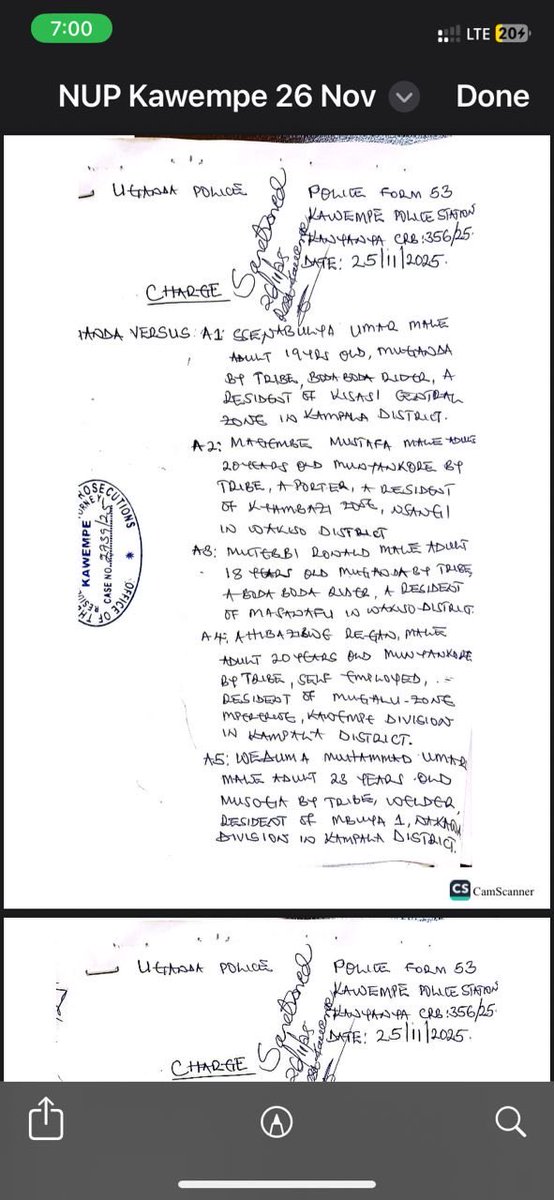 7:00
LTE 20
NUP Kawempe 26 Nov
Done
UGANDA POLICE
POLICE FORM 53
KAWEMPE POLICE STATION
KANYANYA CRB:356/25.
DATE: 25/11/2025.
Sanctioned
26/11/25
CHARGE
ANDA VERSUS: A1 SSENABULYA UMAR MALE
ADULT 19YRS OLD, MUGANDA
BY TRIBE, BODA BODA RIDER, A
RESIDENT OF KISASI CENTRAL
ZONE IN KAMPALA DISTRICT.
A2: MAGEMBE MUSTAFA MALE ADULT
20 YEARS OLD MUNYANKORE BY
TRIBE, A PORTER, A RESIDENT
OF KYAMBAZI ZONE, NSANGI
IN WAKISO DISTRICT
A3: MUTEBBI RONALD MALE ADULT
18 YEARS OLD MUGANDA BY TRIBE,
A BODA BODA RIDER, A RESIDENT
OF MASANAFU IN WAKISO DISTRICT.
A4: AHIBAZIBWE REGAN, MALE
ADULT 20 YEARS OLD MUNYANKORE
BY TRIBE, SELF EMPLOYED,
RESIDENT OF MUGALU-ZONE
MPERERWE, KAWEMPE DIVISION
IN KAMPALA DISTRICT.
A5: WEDUMA MUHAMMAD UMAR
MALE ADULT 23 YEARS OLD
MUSOGA BY TRIBE, WELDER,
RESIDENT OF MBUYA 1, NAKAWA
DIVISION IN KAMPALA DISTRICT.
KAWEMPE
CASE NO.
OFFICE OF THE
CS CamScanner
UGANDA POLICE
POLICE FORM 53
KAWEMPE POLICE STATION
KANYANYA CRB:356/25.
DATE: 25/11/2025.
Sanctioned
26/11/25
CHARGE